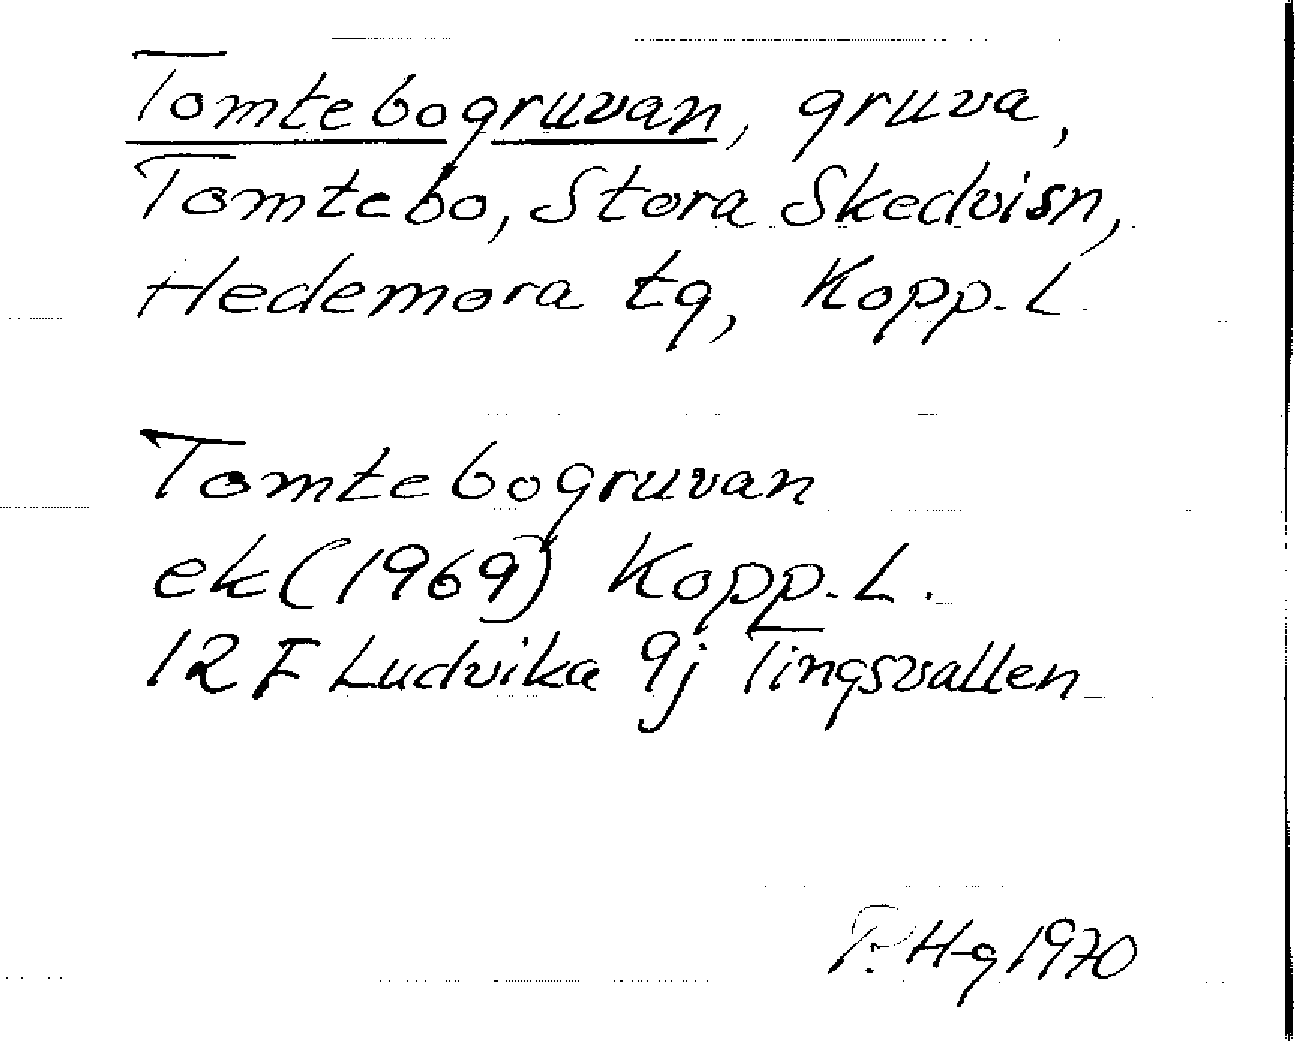 Tomtebogruvan, gruva,
Tomtebo, Stora Skedvisn,
Hedemora tg, Kopp. L.
Tomtebogruvan
ek (1969) Kopp. L.
12 F Ludvika 9j Tingsvallen
P. H-g 1970